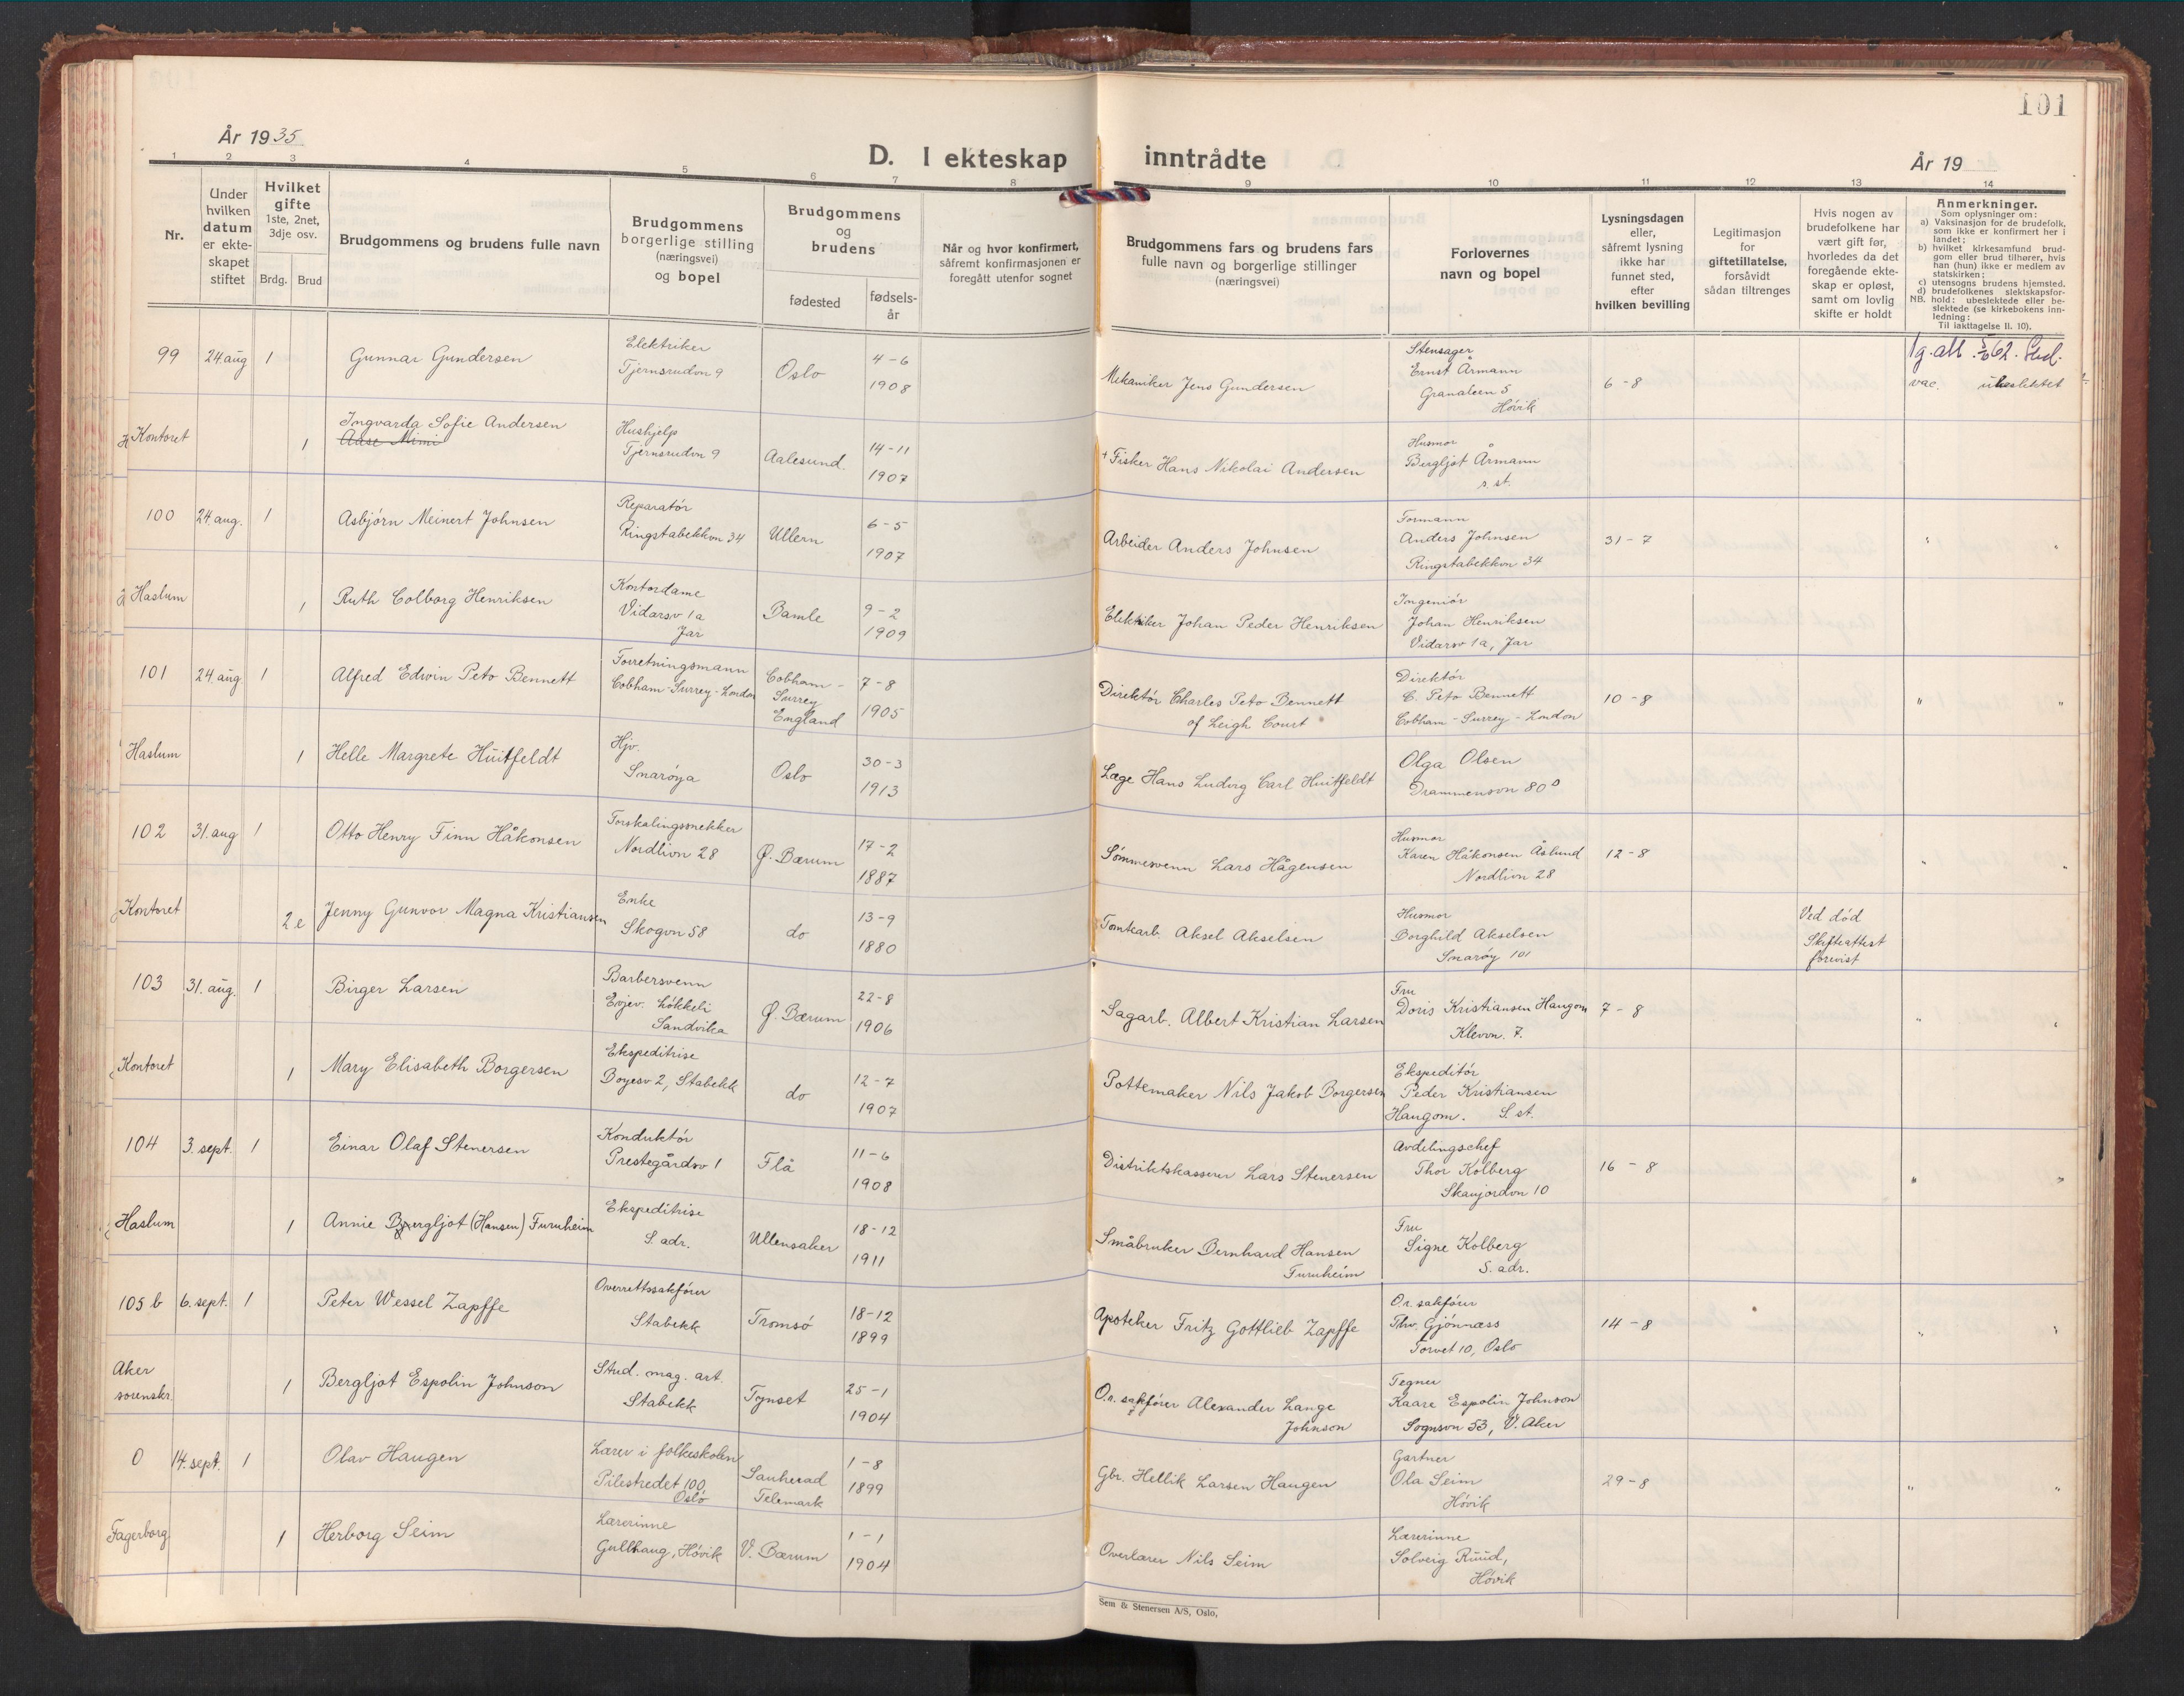 101
År 1935
D. I ekteskap inntrådte
År 19
1 2 3 4 5 6 7 8 9 10 11 12 13 14
Nr.
Under hvilken datum er ekteskapet stiftet
Hvilket gifte
1ste, 2net, 3dje osv.
Brdg. Brud
Brudgommens og brudens fulle navn
Brudgommens borgerlige stilling (næringsvei) og bopel
Brudgommens og brudens
fødested
fødselsår
Når og hvor konfirmert, såfremt konfirmasjonen er foregått utenfor sognet
Brudgommens fars og brudens fars fulle navn og borgerlige stillinger (næringsvei)
Forlovernes navn og bopel
Lysningsdagen eller, såfremt lysning ikke har funnet sted, efter hvilken bevilling
Legitimasjon for giftetillatelse, forsåvidt sådan tiltrenges
Hvis nogen av brudefolkene har vært gift før, hvorledes da det foregående ekteskap er opløst, samt om lovlig skifte er holdt
Anmerkninger.
Som oplysninger om:
a) Vaksinasjon for de brudefolk. som ikke er konfirmert her i landet;
b) hvilket kirkesamfund brudgom eller brud tilhører, hvis han (hun) ikke er medlem av statskirken;
c) utensogns brudens hjemsted.
d) brudefolkenes slektskapsforhold: ubeslektede eller beslektede (se kirkebokens innledning:
NB.
Til iakttagelse II. 10).
99 24 aug 1 Gunnar Gundersen Elektriker Tjernsrudvn 9 Oslo 4-6 1908 Mekaniker Jens Gundersen Stensager Ernst Årmann Granaleen 5 Høvik 6-8 vac. ubeslektet
Kontoret 1 Ingvarda Sofie Andersen Aase Mimi Hushjelp Tjernsrudvn 9 Aalesund. 14-11 1907 + Fisker Hans Nikolai Andersen Husmor Bergljot Årmann s. st.
100 24. aug. 1 Asbjørn Meinert Johnsen Reparatør Ringstabekkvn 34 Ullern 6-5 1907 Arbeider Anders Johnsen Formann Anders Johnsen Ringstabekkvn 34 31-7 " "
Haslum 1 Ruth Colborg Henriksen Kontordame Vidarsv 1a Jar Bamle 9-2 1909 Elektriker Johan Peder Henriksen Ingeniør Johan Henriksen Vidarsv 1a, Jar
101 24. aug. 1 Alfred Edwin Peto Bennett Forretningsmann Cobham-Surrey-London Cobham - Surrey England 7-8 1905 Direktør Charles Peto Bennett of Leigh Court Direktør C. Peto Bennett Cobham-Surrey-London 10-8 " "
Haslum 1 Helle Margrete Huitfeldt Hjv. Snarøya Oslo 30-3 1913 Læge Hans Ludvig Carl Huitfeldt Olga Olsen Drammensvn 80 D
102 31. aug 1 Otto Henry Finn Håkonsen Forskalingssnekker Nordlivn 28 Ø. Bærum 17-2 1887 Sømmesvenn Lars Hågensen Husmor Karen Håkonsen Åslund Nordlivn 28 12-8 " "
Kontoret 2 e Jenny Gunvor Magna Kristiansen Enke Skogvn 58 do 13-9 1880 Tomtearb. Aksel Akselsen Husmor Borghild Akselsen Snarøy 101 Ved død Skifteattest forevist
103 31. aug. 1 Birger Larsen Barbersvenn Evjev. Løkkeli Sandvika Ø. Bærum 22-8 1906 Sagarb. Albert Kristian Larsen Fru Doris Kristiansen Haugom Klevvn. 7. 7-8 " "
Kontoret 1 Mary Elisabeth Borgersen Ekspeditrise Boyesv 2, Stabekk do 12-7 1907 Pottemaker Nils Jakob Borgersen Ekspeditør Peder Kristiansen Haugom. S. st.
104 3. sept. 1 Einar Olaf Stenersen Konduktør Prestegårdsv 1 Flå 11-6 1908 Distriktskasserer Lars Stenersen Avdelingschef Thor Kolberg Skaujordvn 10 16-8 " "
Haslum 1 Annie Bergljot (Hansen) Furuheim Ekspeditrise S. adr. Ullensaker 18-12 1911 Småbruker Bernhard Hansen Furuheim Fru Signe Kolberg S. adr.
105 b 6. sept. 1 Peter Wessel Zapffe Overrettssakfører Stabekk Tromsø 18-12 1899 Apoteker Fritz Gottlieb Zapffe O.r. sakfører Thv. Gjønnæss Torvet 10, Oslo 14-8 " "
Aker sorenskr. 1 Bergljot Espolin Johnson Stud. mag. art. Stabekk Tynset 25-1 1904 O.r. sakfører Alexander Lange Johnson Tegner Kaare Espolin Johnson Sognsvn 53, V. Aker
0 14. sept. 1 Olav Haugen Lærer i folkeskolen Pilestredet 100, Oslo Sauherad Telemark 1-8 1899 Gbr. Hellik Larsen Haugen Gartner Ola Seim Høvik 29-8 " "
Fagerborg 1 Herborg Seim Lærerinne Gullhaug, Høvik V. Bærum 1-1 1904 Overlærer Nils Seim Lærerinne Solveig Ruud, Høvik
Sem & Stenersen A/S, Oslo.